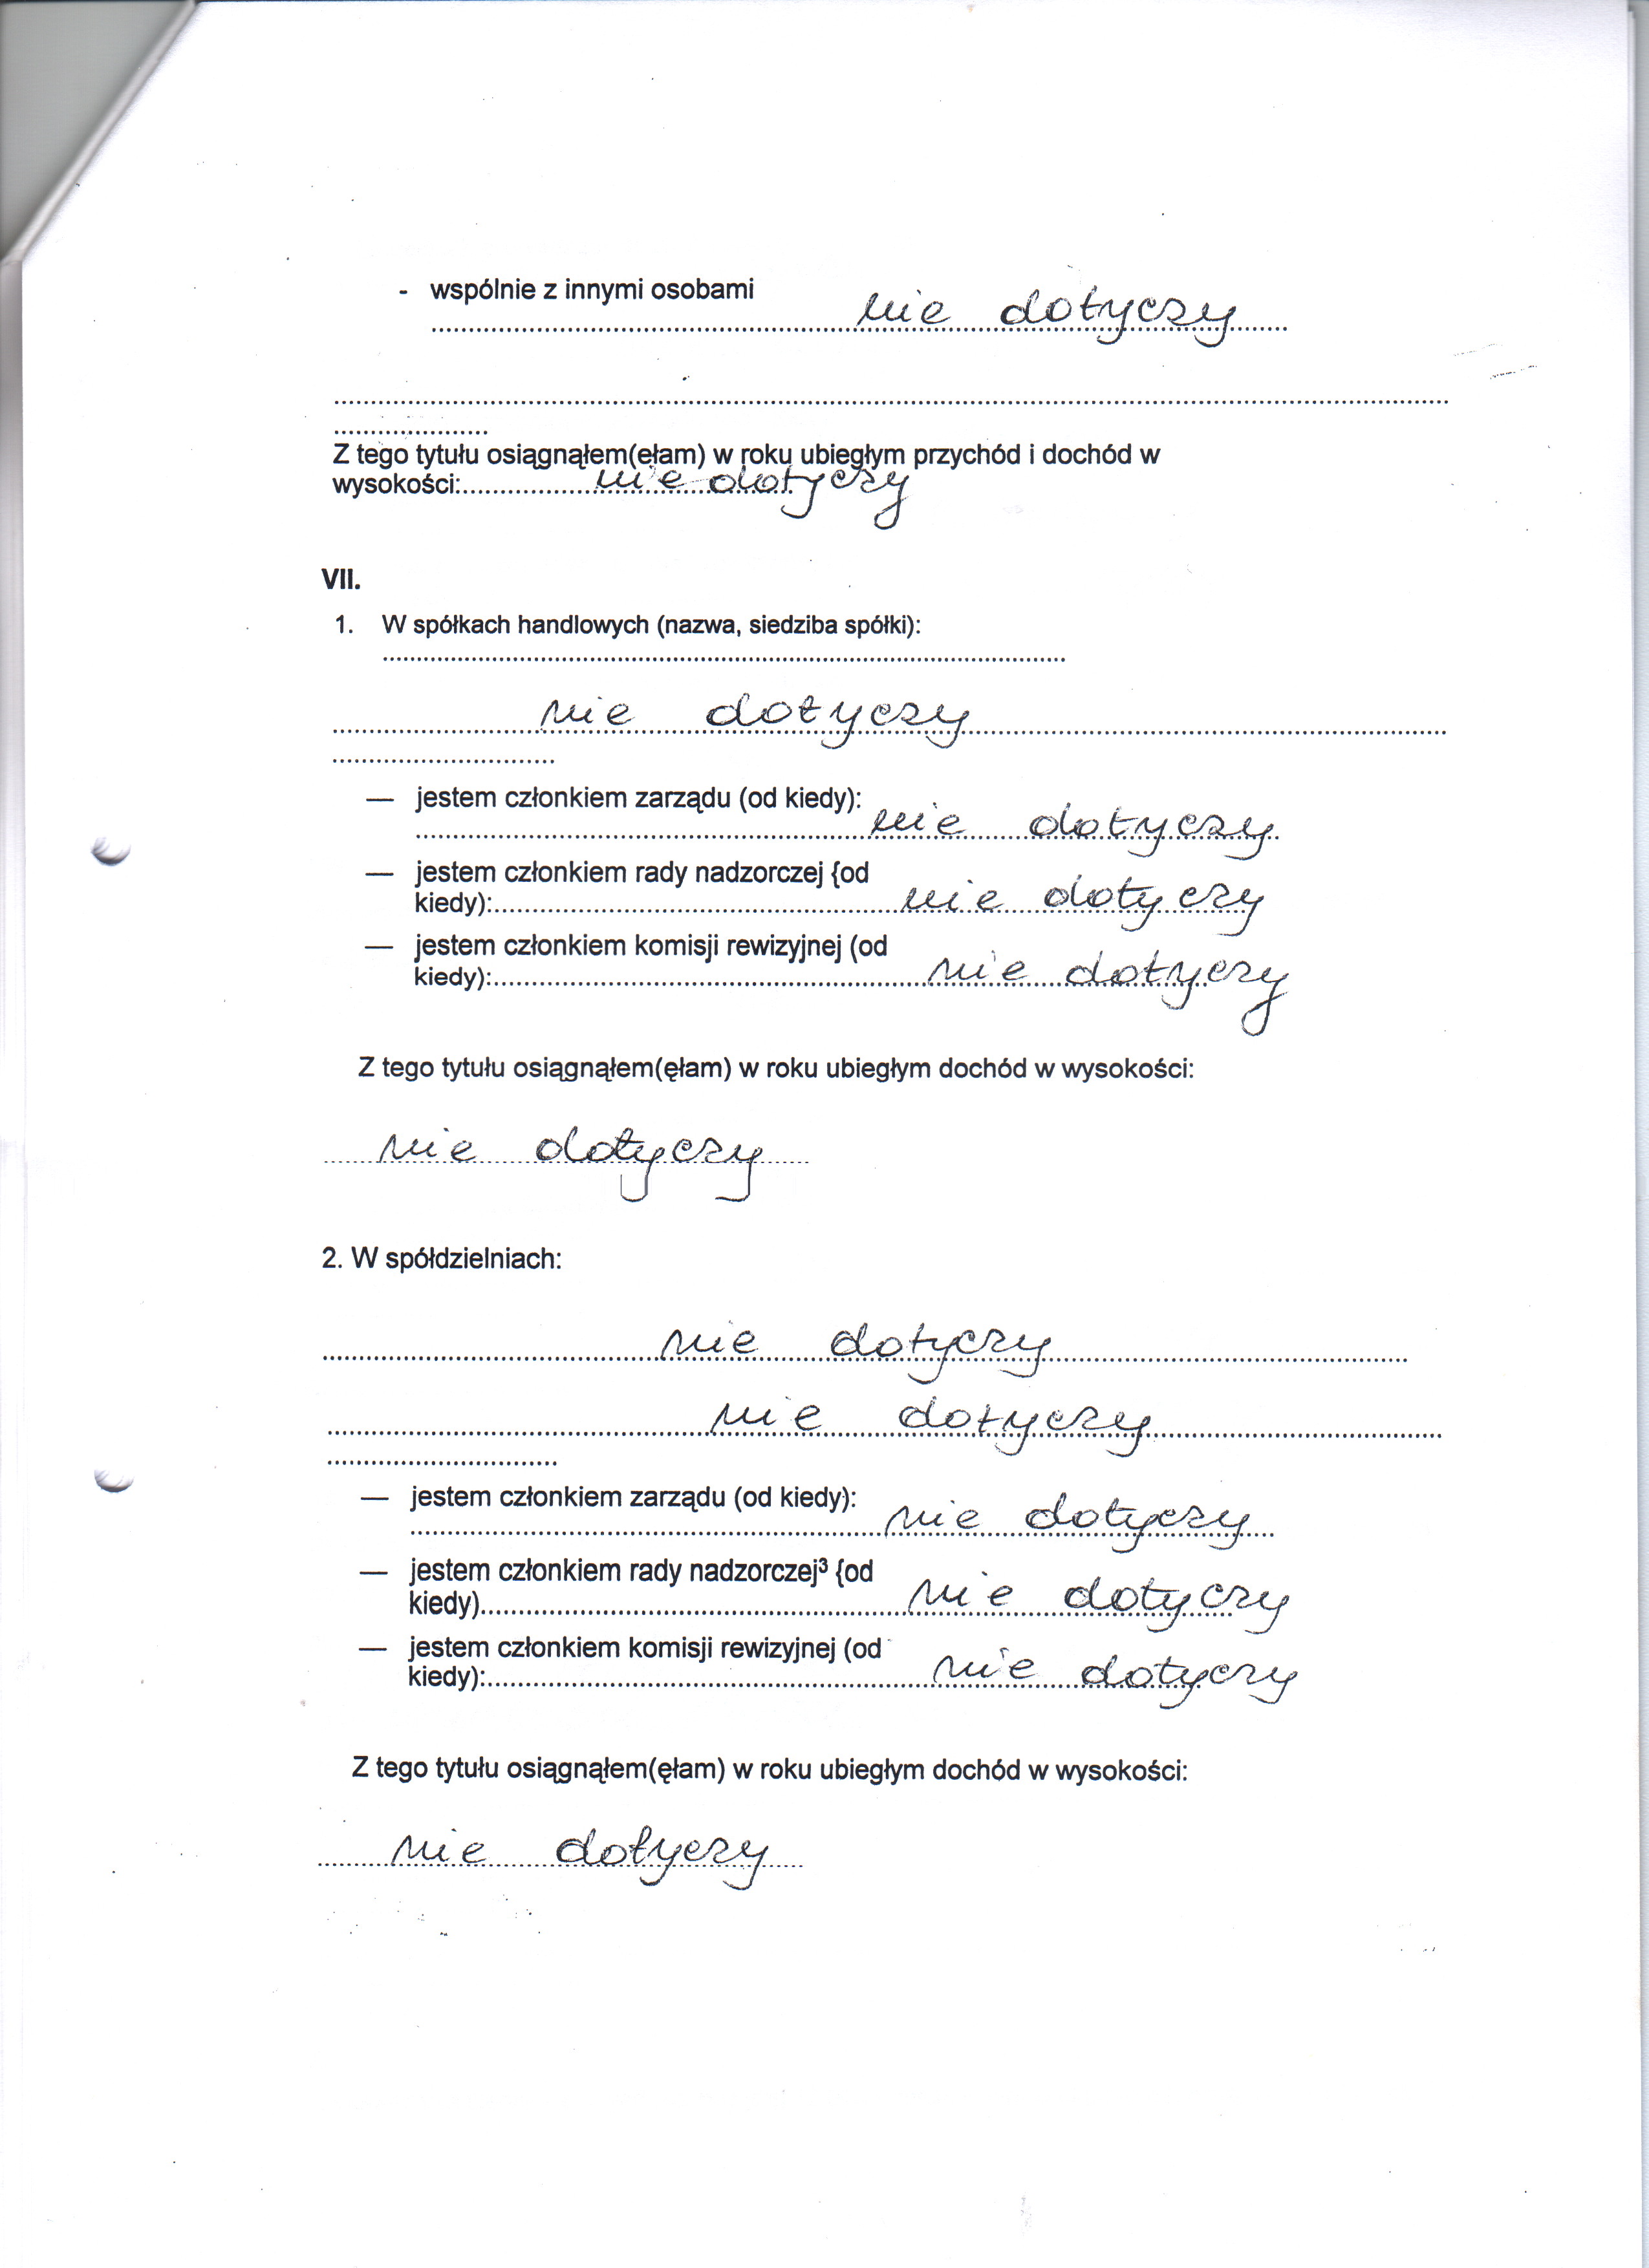 - wspólnie z innymi osobami
nie dotyczy
Z tego tytułu osiągnąłem(ełam) w roku ubiegłym przychód i dochód w
wysokości: nie dotyczy
VII.
1. W spółkach handlowych (nazwa, siedziba spółki):
nie dotyczy
— jestem członkiem zarządu (od kiedy):
nie dotyczy
— jestem członkiem rady nadzorczej {od
kiedy): nie dotyczy
— jestem członkiem komisji rewizyjnej (od
kiedy): nie dotyczy
Z tego tytułu osiągnąłem(ęłam) w roku ubiegłym dochód w wysokości:
nie dotyczy
2. W spółdzielniach:
nie dotyczy
nie dotyczy
— jestem członkiem zarządu (od kiedy):
nie dotyczy
— jestem członkiem rady nadzorczej³ {od
kiedy) nie dotyczy
— jestem członkiem komisji rewizyjnej (od
kiedy): nie dotyczy
Z tego tytułu osiągnąłem(ęłam) w roku ubiegłym dochód w wysokości:
nie dotyczy